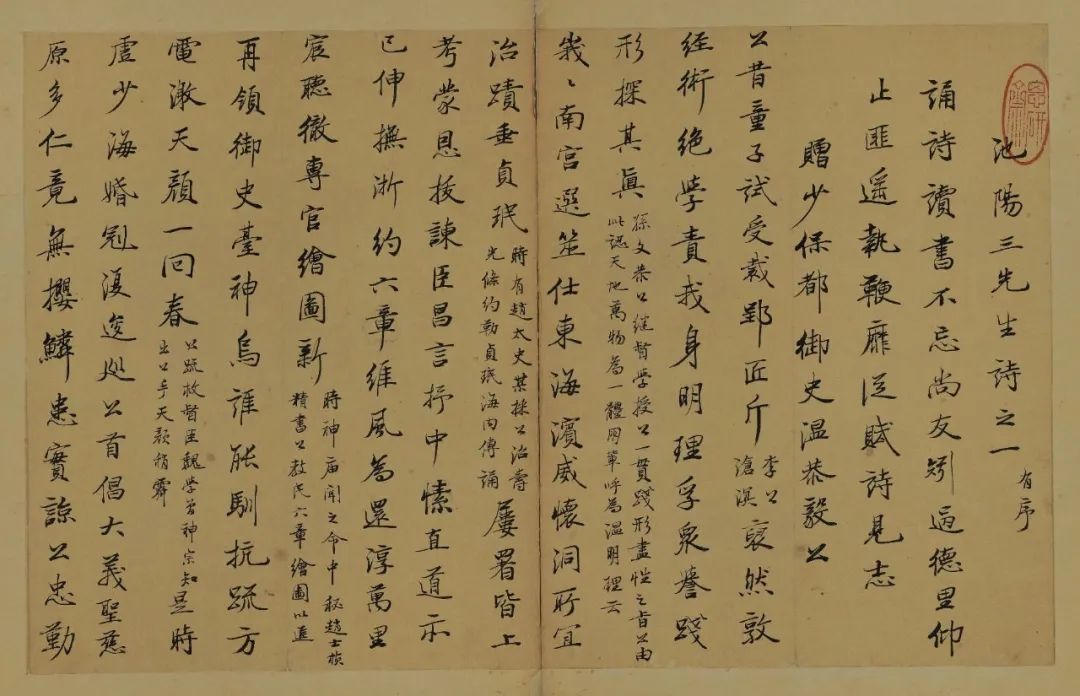 池陽三先生詩之一 有序
誦詩讀書不忘尚友矧過德里仰
止匪遥執鞭靡從賦詩見志
贈少保都御史温恭毅公
公昔童子試受裁郢匠斤 李公滄溟 裒然敦
經術絶學責我身明理孚衆譽踐
形探其真 孫文恭公繼督學授公一貫踐形盡性之旨公由此認天地萬物為一體同輩呼為温明理云
峩峩南宮選筮仕東海濱威懷洞所宜
治蹟垂貞珉 時有趙太史某採公治壽光條約勒貞珉海内傳誦 屢署皆上
考蒙恩拔諫臣昌言抒中愫直道示
已伸撫浙約六章維風為還淳萬里
宸聽徹專官繪圖新 時神庙聞之命中秘趙士楨精書公教民六章繪圖以進
再領御史臺神烏誰能馴抗疏方
電激天顔一回春 公疏救督臣魏學曾神宗知是時出公手天顔稍霽
虚少海婚冠復逡巡公首倡大義聖慈
原多仁竟無攖鱗患實諒公忠勤